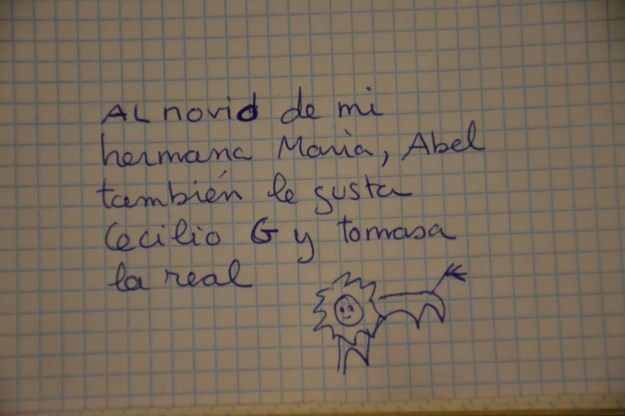 AL novio de mi
hermana Maria, Abel
también le gusta
Cecilio G y tomasa
la real